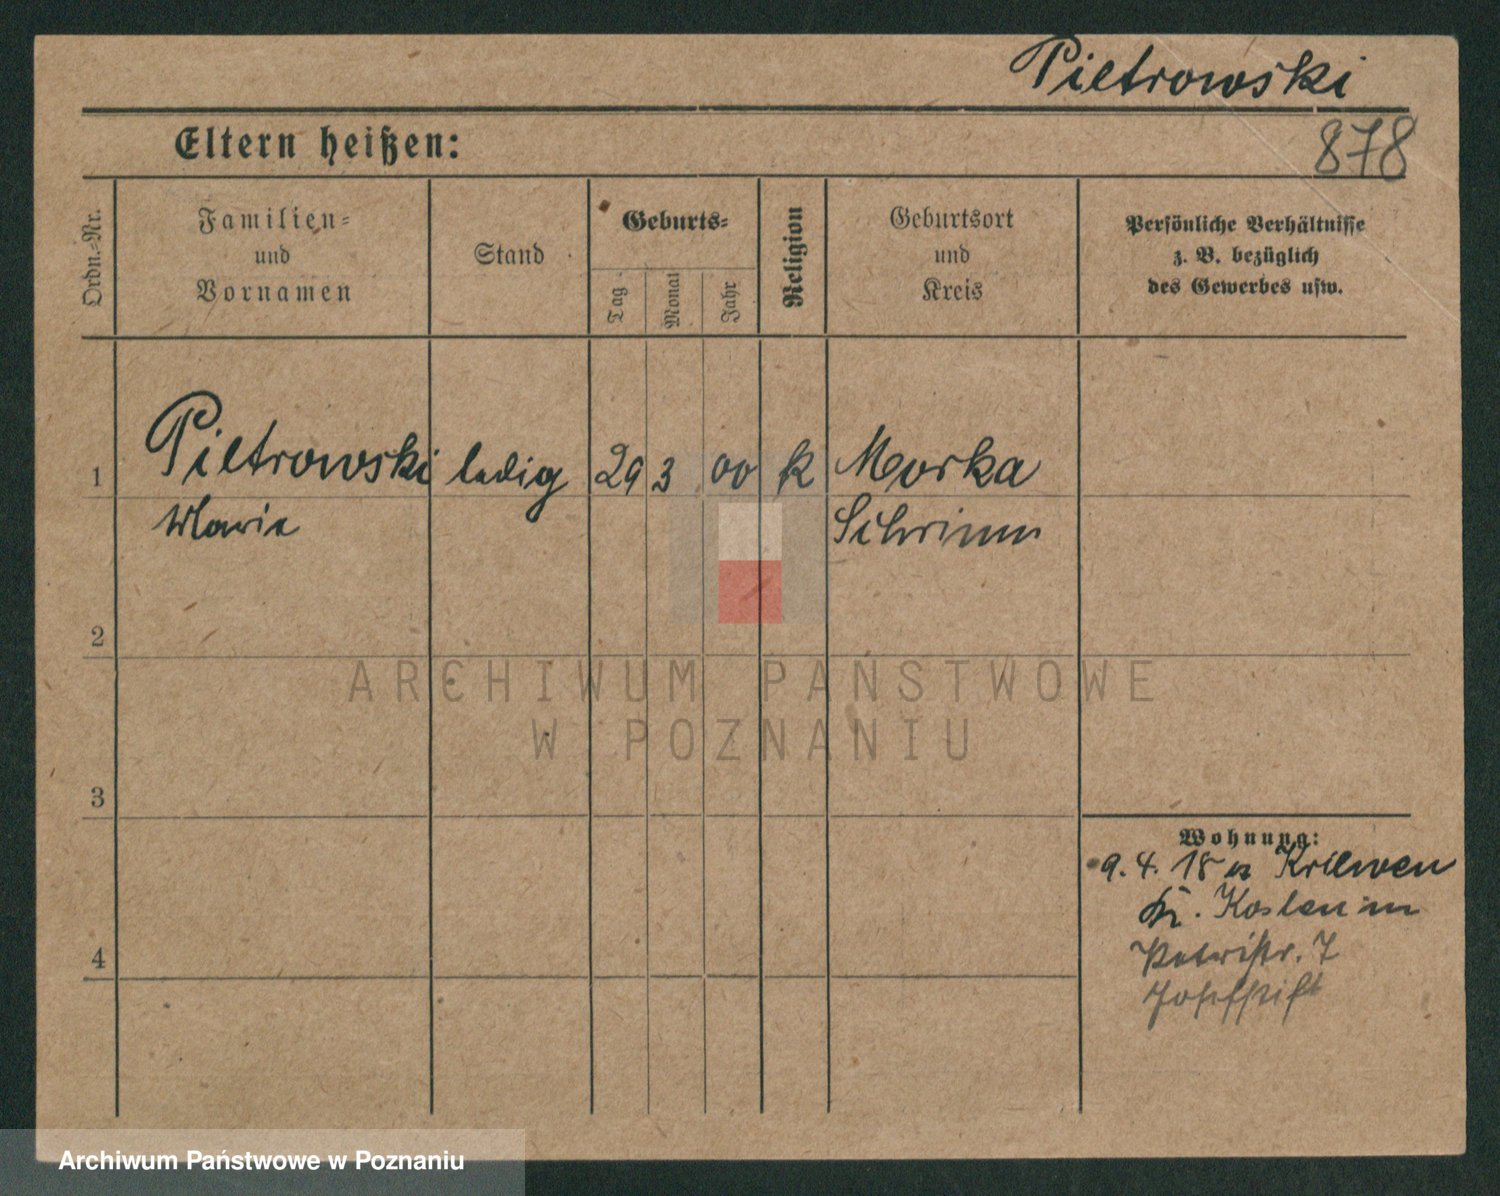 Pietrowski
878
Eltern heißen:
Ordn.-Nr.
Familien-
und
Vornamen
Stand
Geburts-
Tag
Monat
Jahr
Religion
Geburtsort
und
Kreis
Persönliche Verhältnisse
z. B. bezüglich
des Gewerbes usw.
1 Pietrowski ledig 29 3 00 k Morka
Marie Schrimm
2
ARCHIWUM PAŃSTWOWE
W POZNANIU
3
Wohnung:
9. 4. 18 Kriewen
Kr. Kosten
4
Petristr. 7
Josefstift
Archiwum Państwowe w Poznaniu